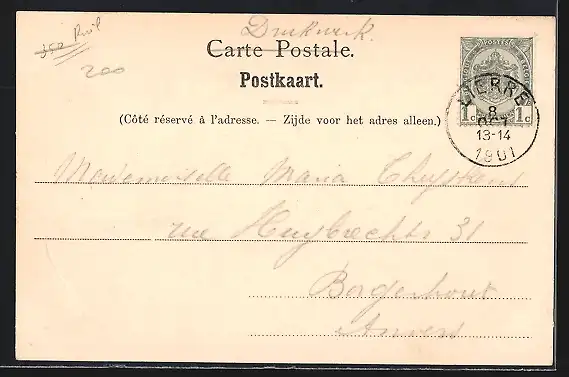 Drukwerk.
350 Roil
200
Carte Postale.
Postkaart.
(Côté réservé à l'adresse. — Zijde voor het adres alleen.)
POSTES
1c 1c
LIERRE
8
OCT
13-14
1901
Mademoiselle Maria
rue Huybrechts 31
Borgerhout
Anvers